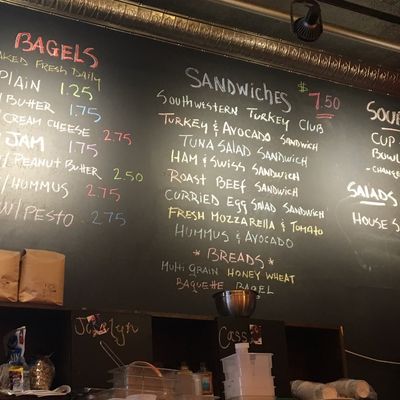 BAGELS
BAKED FRESH DAILY
PLAIN 1.25
BUTTER 1.75
CREAM CHEESE 2.75
JAM 1.75
W/ PEANUT BUTTER 2.50
W/ HUMMUS 2.75
W/ PESTO 2.75
SANDWICHES $7.50
SOUTHWESTERN TURKEY CLUB
TURKEY & AVOCADO SANDWICH
TUNA SALAD SANDWICH
HAM & SWISS SANDWICH
ROAST BEEF SANDWICH
CURRIED EGG SALAD SANDWICH
FRESH MOZZARELLA & TOMATO
HUMMUS & AVOCADO
* BREADS *
MULTI GRAIN HONEY WHEAT
BAGUETTE BAGEL
SOU
CUP
BOWL
- CHANGE
SALADS
HOUSE S
Josslyn
Cass